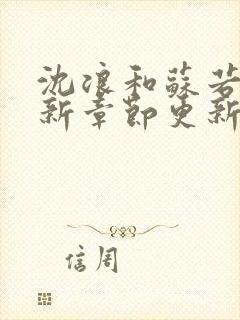 沈浪和蘇若
新章節更新
信周